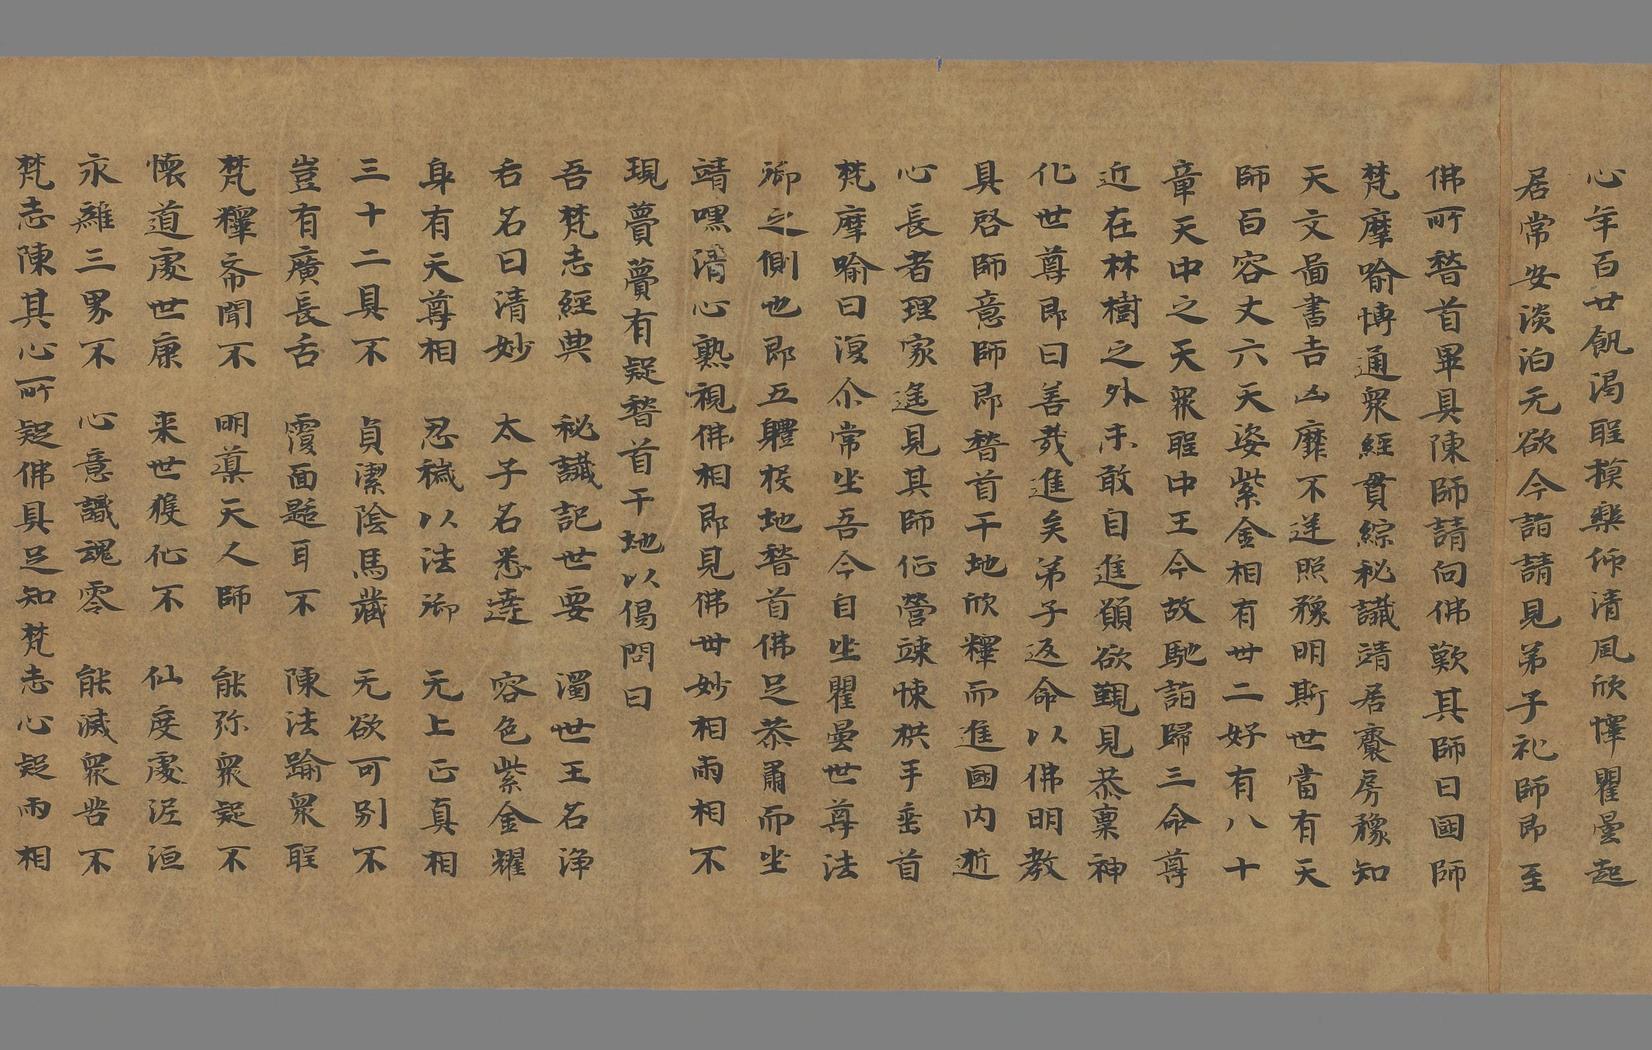 心年百廿飢渴聖模樂師清風欣懌瞿曇起
居常安淡泊无欲今詣請見弟子礼師即至
佛所稽首畢具陳師請向佛歎其師曰國師
梵摩喻博通眾經貫綜秘讖靖居齋房豫知
天文啚書吉凶靡不逆照豫明斯世當有天
師曰容丈六天姿紫金相有卅二好有八十
章天中之天眾聖中王今故馳詣歸三命尊
近在林樹之外未敢自進願欲覲見恭稟神
化世尊即曰善哉進矣弟子返命以佛明教
具啓師意師即稽首于地欣懌而進國內逝
心長者理家遙見其師征營竦悚拱手垂首
梵摩喻曰復尒常坐吾今自坐瞿曇世尊法
御之側也即五體投地稽首佛足恭肅而坐
靖嘿清心熟視佛相即見佛卅妙相兩相不
現薨薨有疑稽首于地以偈問曰
吾梵志經典　秘讖記世要　濁世王名淨
右名曰清妙　太子名悉達　容色紫金耀
身有天尊相　忍穢以法御　无上正真相
三十二具不　貞潔陰馬藏　无欲可別不
豈有廣長舌　覆面䑛耳不　陳法踰眾聖
梵釋希聞不　明導天人師　能弥眾疑不
懷道處世康　来世獲化不　仙度處泥洹
永離三界不　心意識魂零　能滅眾苦不
梵志陳其心所疑佛具足知梵志心疑兩相